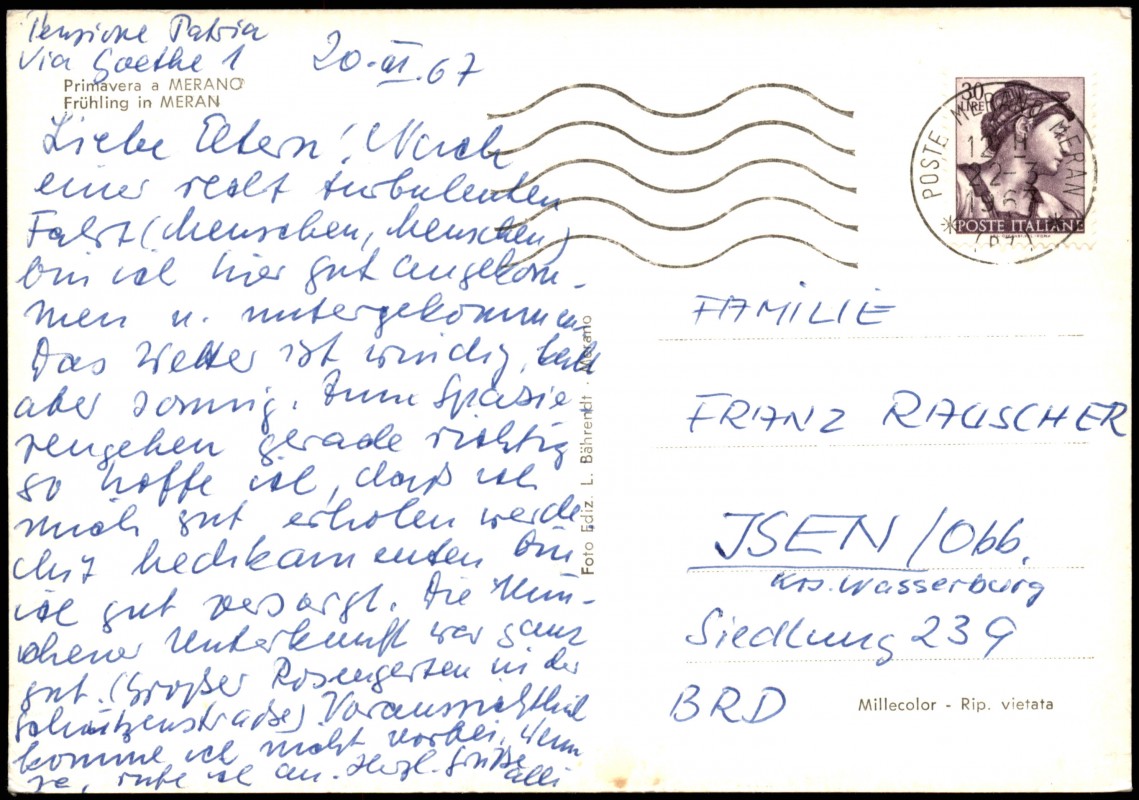 Pensione Patria
Via Goethe 1
20. 67
Primavera a MERANO
Frühling in MERAN
Liebe Eltern! Nach
einer recht turbulenten
Fahrt (Menschen, Menschen)
bin ich hier gut angekom-
men u. untergekommen
Das Wetter ist windig, kalt
aber sonnig. Zum Spazie
rengehen gerade richtig
so hoffe ich, daß ich
mich gut erholen werde
Mit Medikamenten bin
ich gut versorgt. Die Mün-
chener Unterkunft war ganz
gut. (Großer Rosengarten in der
Schützenstraße) Voraussichtlich
komme ich nicht vorbei. Wenn
ja, rufe ich an. Herzl. Grüße
alli
Foto Ediz. L. Bährendt · Merano
30
LIRE
POSTE ITALIANE
POSTE MERANO MERAN
12 H
FAMILIE
FRANZ RAUSCHER
ISEN/Obb.
Krs. Wasserburg
Siedlung 239
BRD
Millecolor - Rip. vietata